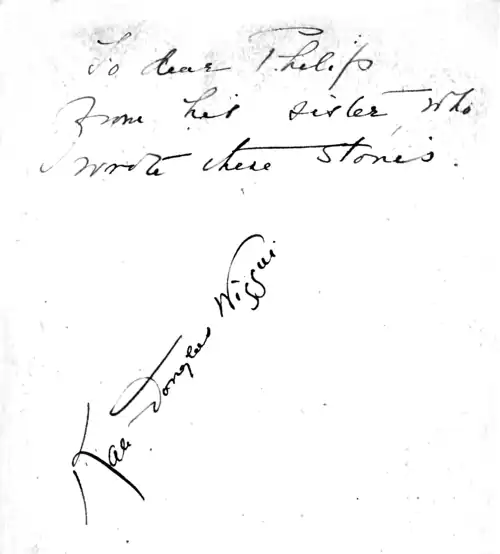 To dear Philip
From his sister, who
wrote these stories.
Kate Douglas Wiggin